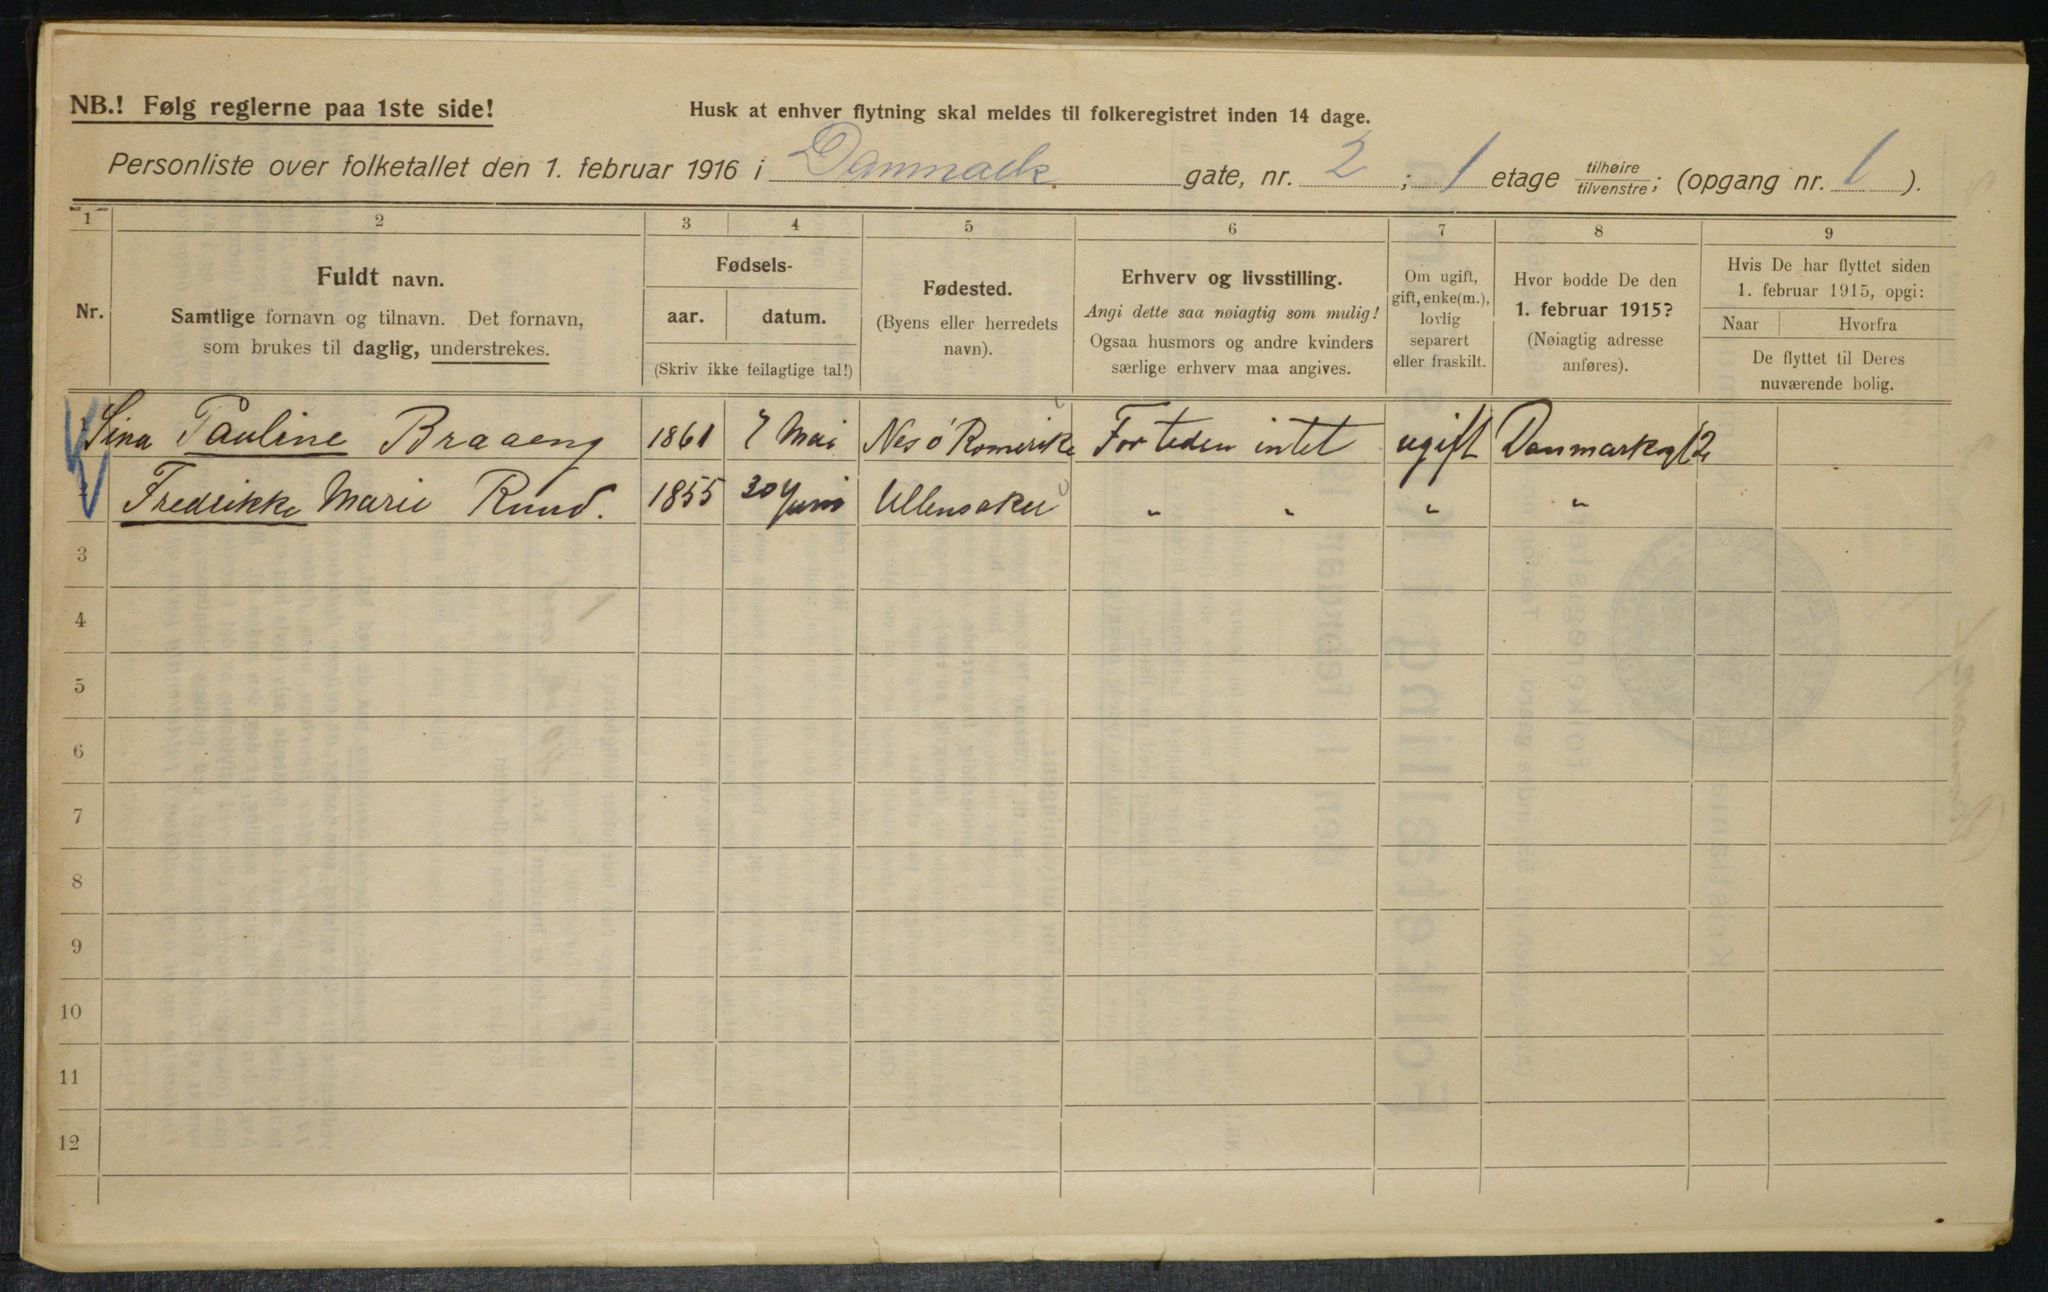 NB.! Følg reglerne paa 1ste side!
Husk at enhver flytning skal meldes til folkeregistret inden 14 dage.
Personliste over folketallet den 1. februar 1916 i Danmark. gate, nr. 2 ; 1 etage tilhøire / tilvenstre; (opgang nr. 1 ).
1 2 3 4 5 6 7 8 9
Nr.
Fuldt navn.
Samtlige fornavn og tilnavn. Det fornavn,
som brukes til daglig, understrekes.
Fødsels-
aar. datum.
(Skriv ikke feilagtige tal!)
Fødested.
(Byens eller herredets
navn).
Erhverv og livsstilling.
Angi dette saa nøiagtig som mulig!
Ogsaa husmors og andre kvinders
særlige erhverv maa angives.
Om ugift,
gift, enke(m.),
lovlig
separert
eller fraskilt.
Hvor bodde De den
1. februar 1915?
(Nøiagtig adresse
anføres).
Hvis De har flyttet siden
1. februar 1915, opgi:
Naar Hvorfra
De flyttet til Deres
nuværende bolig.
Sina Pauline Braaeng 1861 7 Mai Nes ö Romerike For tiden intet ugift Danmarksgt 2
Fredrikke Marie Ruud. 1855 30 Juni Ullensaker " " " "
3
4
5
6
7
8
9
10
11
12